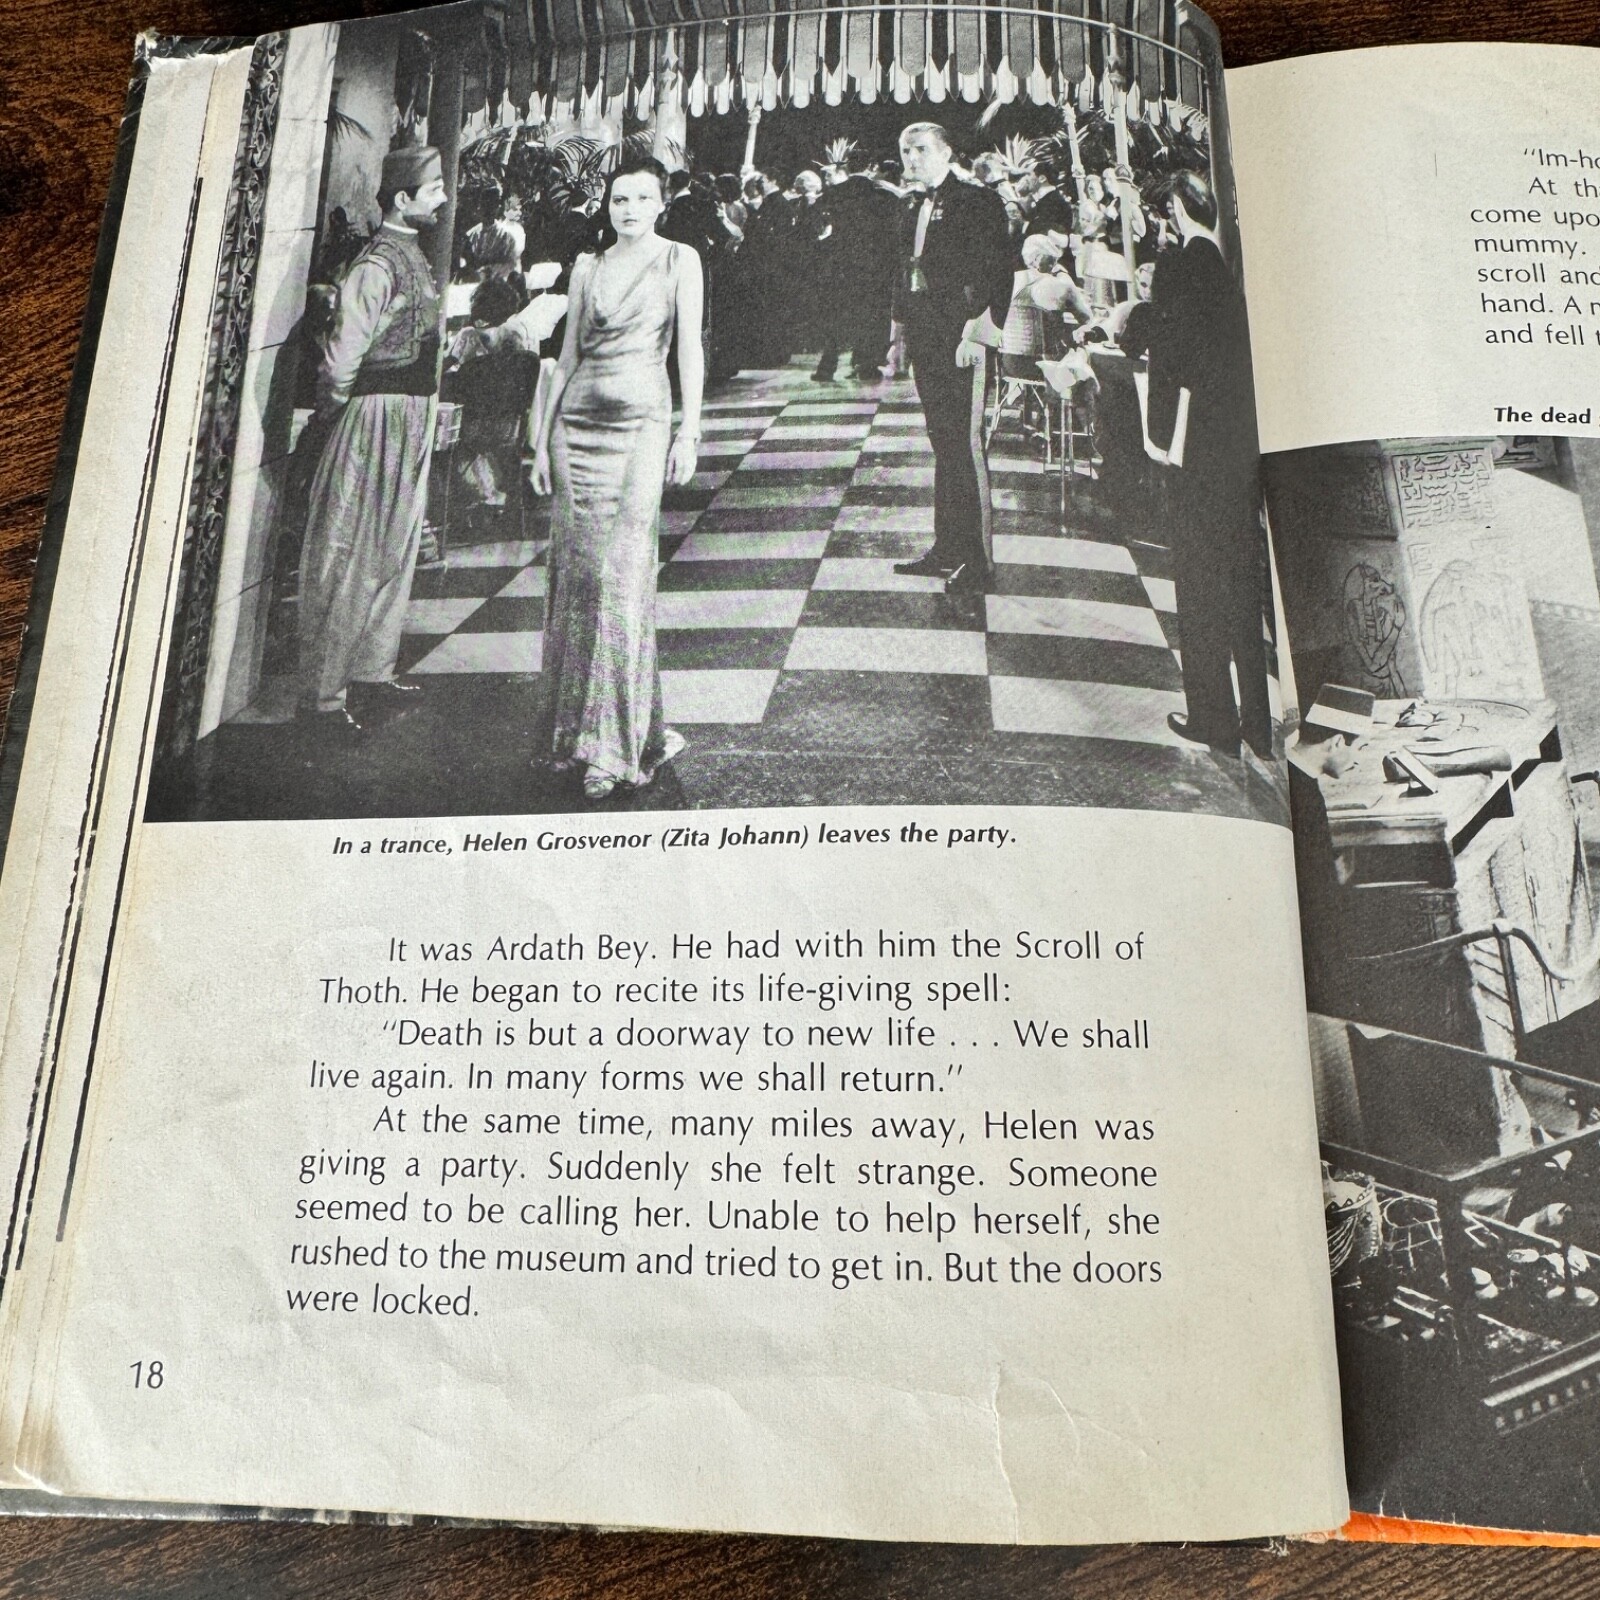 In a trance, Helen Grosvenor (Zita Johann) leaves the party.
It was Ardath Bey. He had with him the Scroll of
Thoth. He began to recite its life-giving spell:
"Death is but a doorway to new life . . . We shall
live again. In many forms we shall return."
At the same time, many miles away, Helen was
giving a party. Suddenly she felt strange. Someone
seemed to be calling her. Unable to help herself, she
rushed to the museum and tried to get in. But the doors
were locked.
18
At
come
mummy.
scroll and
hand. A
and fell
The dead